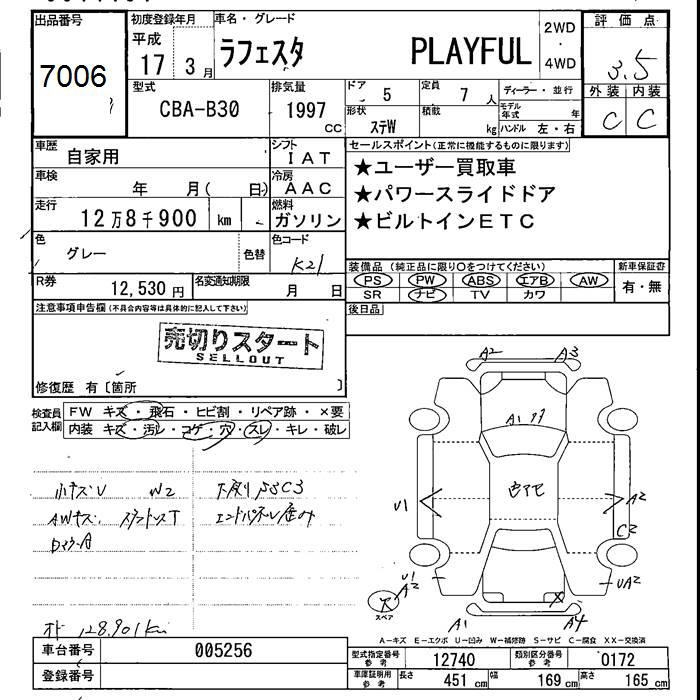 出品番号 初度登録年月 車名・グレード 2WD 評価点
7006 平成 17 3月 ラフェスタ PLAYFUL ・ 4WD 3.5
型式 排気量 ドア 定員 ディーラー・並行 外装 内装
CBA-B30 1997 CC 5 7人 モデル年式 年 C C
形状 積載
ステW kg ハンドル 左・右
車歴 自家用 シフト IAT
車検 年 月( 日) 冷房 AAC
走行 12万8千900 km 燃料 ガソリン
色 グレー 色替 色コード K21
R券 12,530円 名変通知期限 月 日
セールスポイント(正常に機能するものに限ります)
★ユーザー買取車
★パワースライドドア
★ビルトインETC
装備品(純正品に限り○をつけてください) 新車保証書
PS PW ABS エアB AW 有・無
SR ナビ TV カワ
後日品
注意事項申告欄(不具合内容等は具体的に記入して下さい)
売切りスタート
SELLOUT
修復歴 有〔箇所 〕
検査員記入欄 FW キズ・飛石・ヒビ割・リペア跡・×要
内装 キズ・汚レ・コゲ・穴・スレ・キレ・破レ
小キズU W2
AWキズ
128,901km
A2 A3
A1
U1 A2
C2
U1 A2 UA2
スペア
A1 A4
A−キズ E−エクボ U−凹み W−補修跡 S−サビ C−腐食 XX−交換済
車台番号 005256
登録番号
型式指定番号 参考 12740 類別区分番号 参考 0172
車庫証明用 参考 長さ 451 cm 幅 169 cm 高さ 165 cm